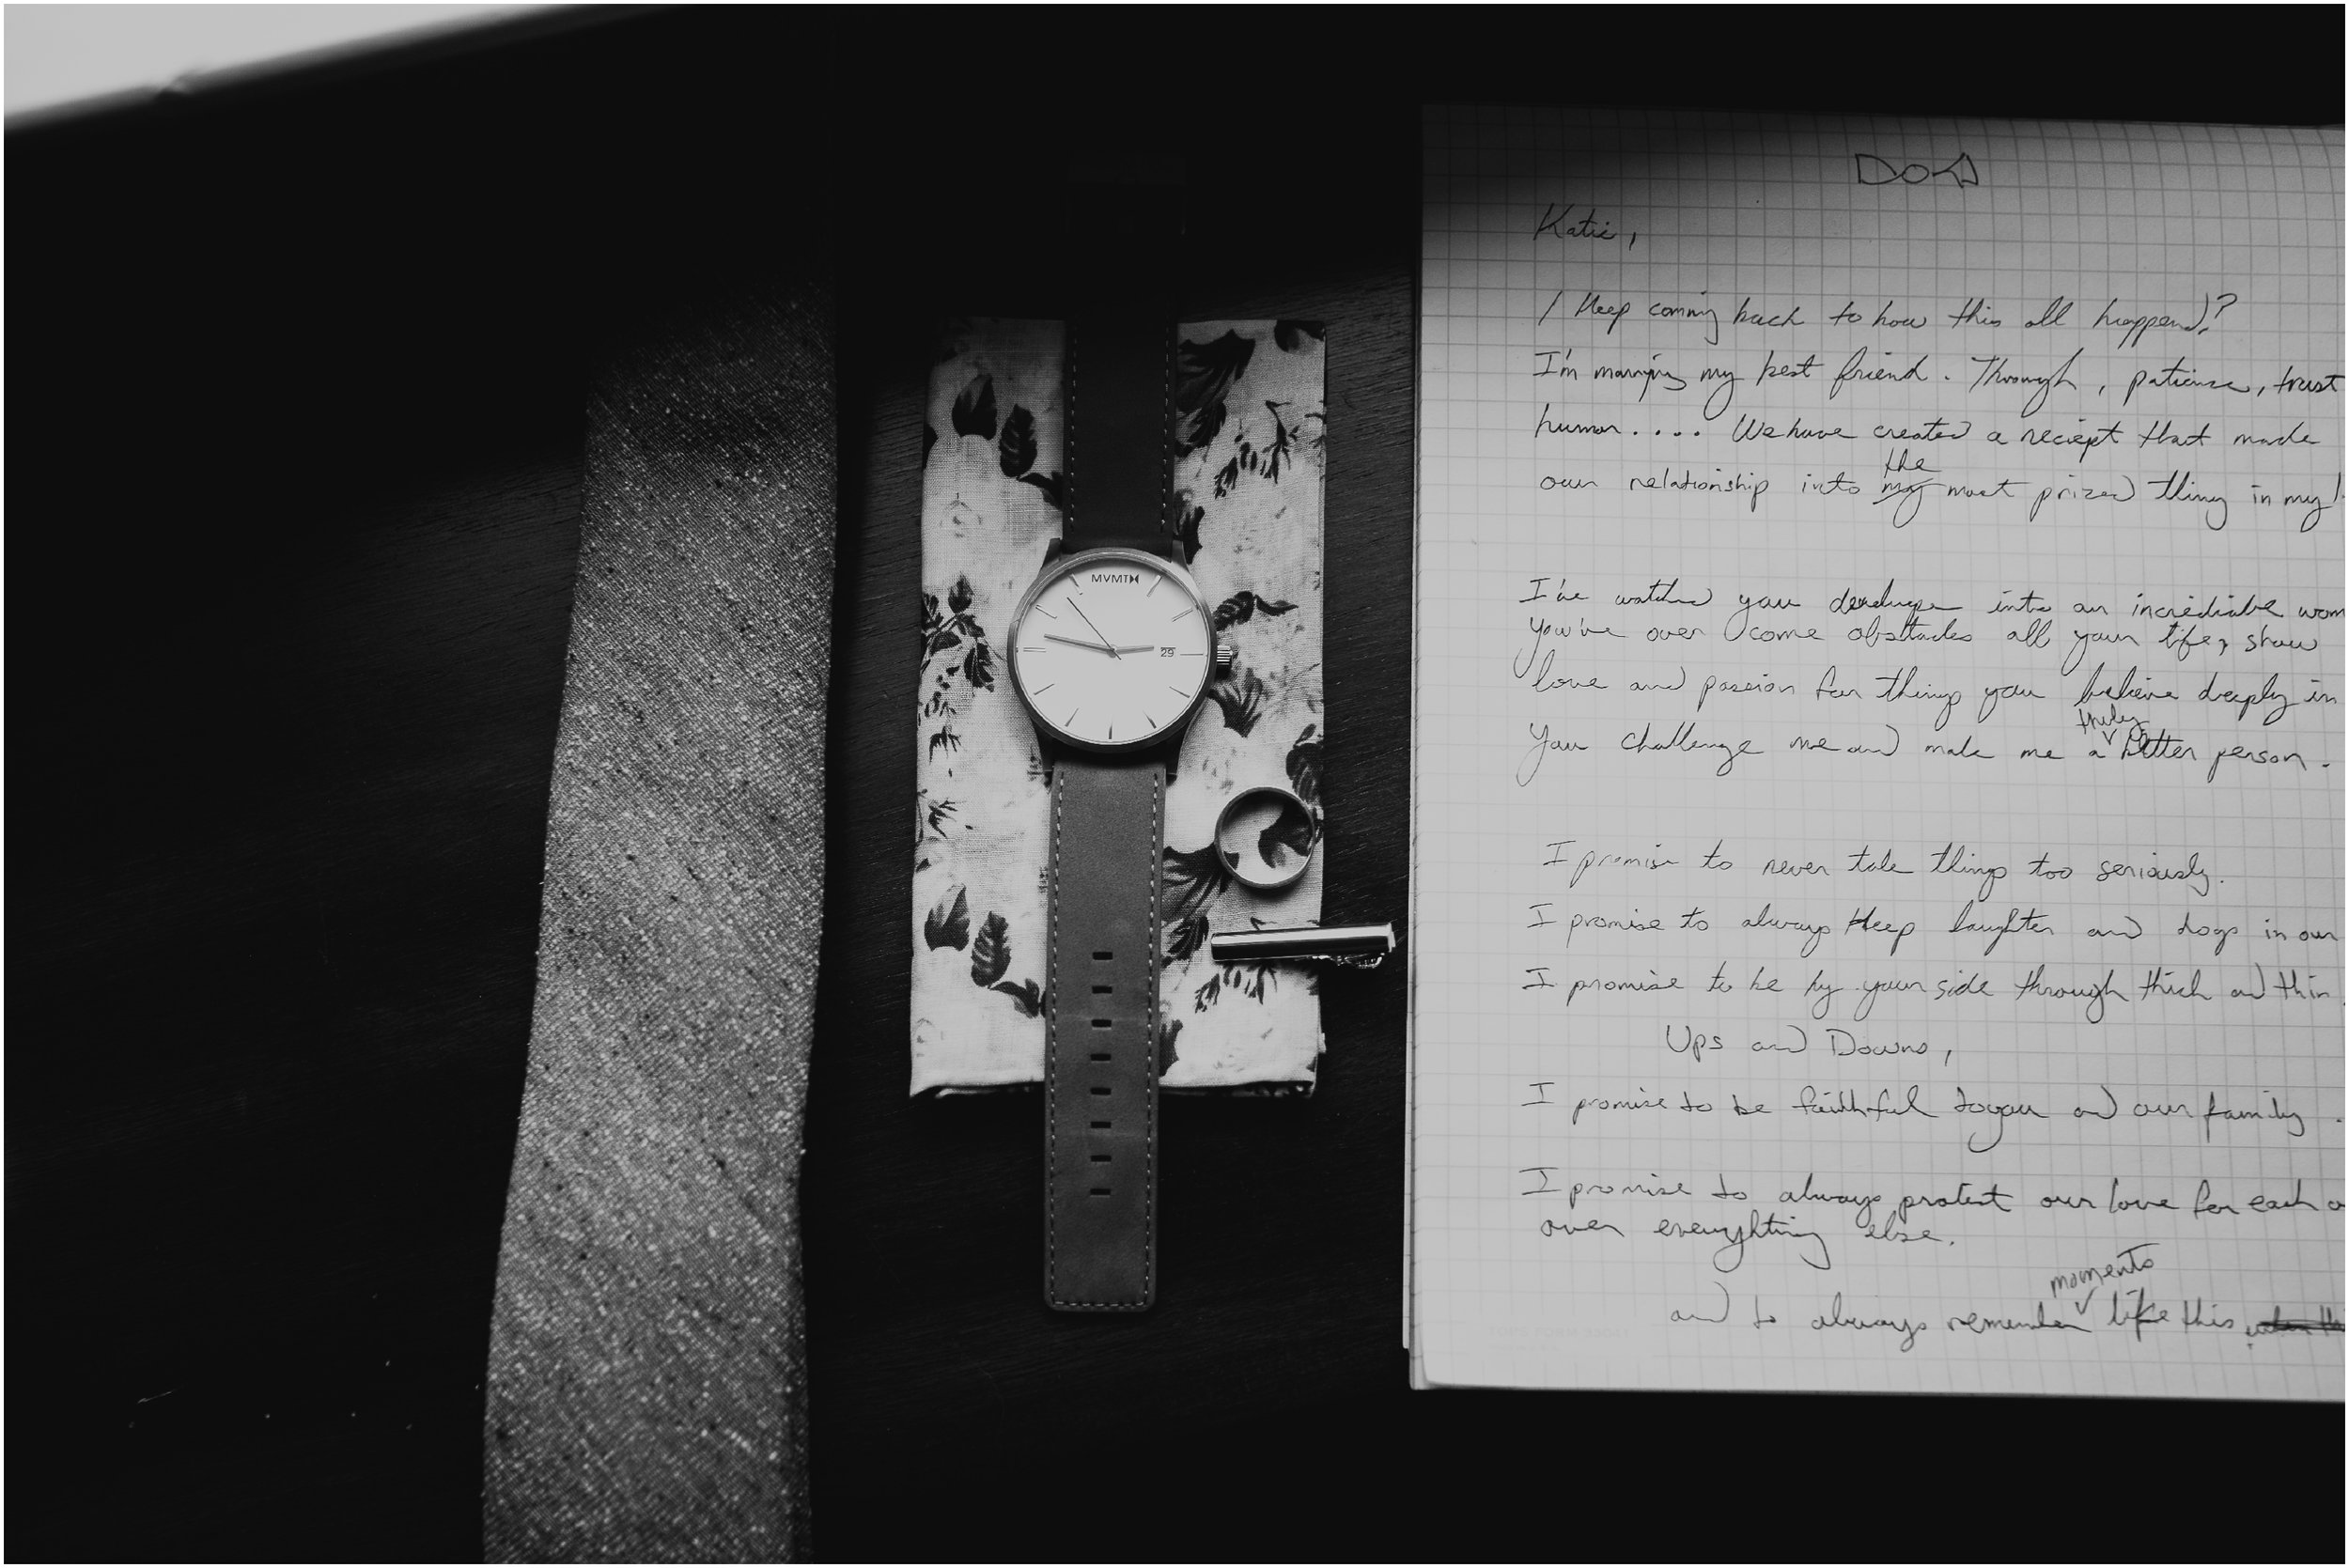 MVMT
29
Katie,
I keep coming back to how this all happend?
I'm marrying my best friend. Through, patience, trust
humor.... We have created a reciept that made
the
our relationship into my most prized thing in my
I've watched you into an incrediable
You've over come obstacles all your life, show
love and passion for things you believe deeply in
truly
You challenge me and make me a better person.
I promise to never take things too seriously.
I promise to always keep laughter and dogs in our
I promise to be by your side through thick and thin
Ups and Downs,
I promise to be faithful to you and our family.
I promise to always protect our love for each
over everyhting else.
moments
and to always remember like this